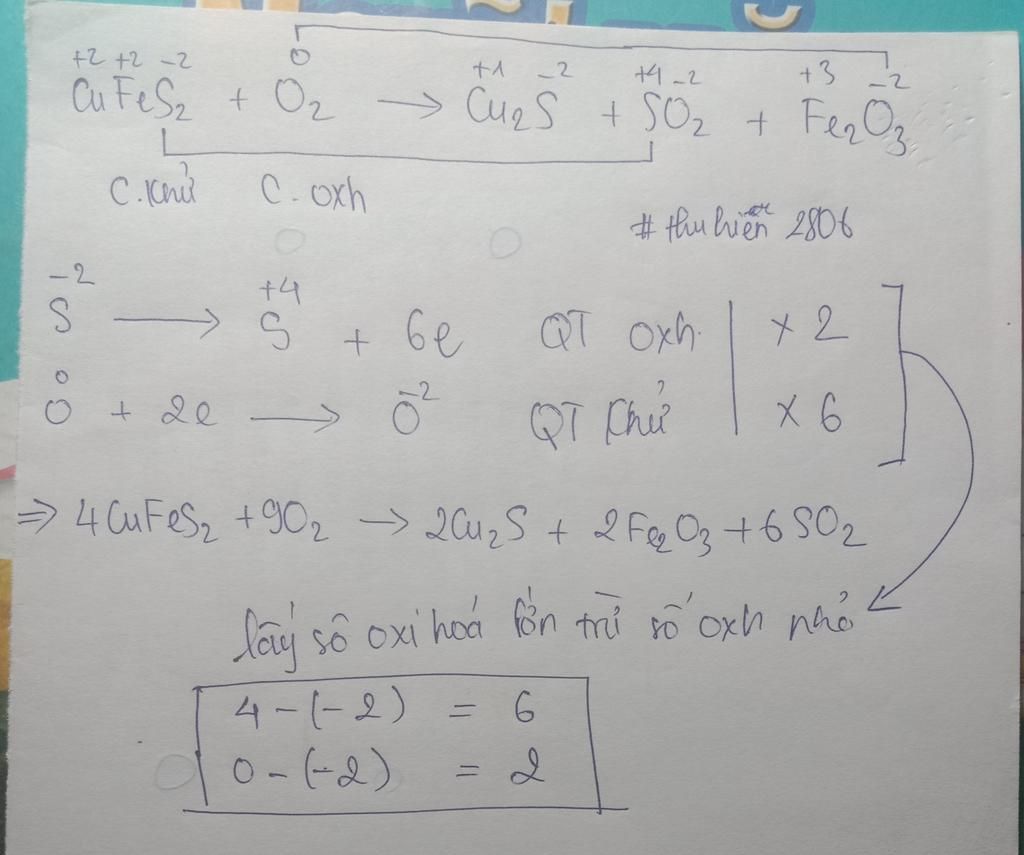 +2 +2 -2 0 +1 -2 +4 -2 +3 -2
CuFeS2 + O2 → Cu2S + SO2 + Fe2O3
C.Khử C.oxh
#thuhiền 2806
-2 +4
S → S + 6e QT oxh. | x 2
0 -2
O + 2e → O QT Khử | x 6
⇒ 4CuFeS2 + 9O2 → 2Cu2S + 2Fe2O3 + 6SO2
lấy số oxi hoá lớn trừ số oxh nhỏ
4 - (-2) = 6
0 - (-2) = 2